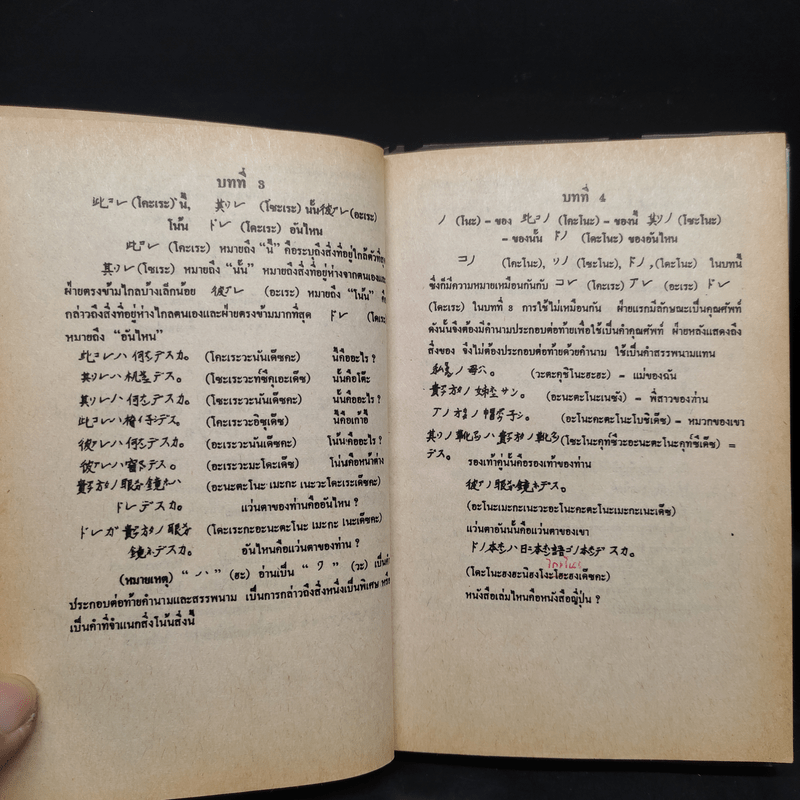 บทที่ 3
此コレ (โคะเระ) นี้, 其ソレ (โซะเระ) นั้น彼アレ (อะเระ)
โน้น ドレ (โดะเระ) อันไหน
此コレ (โคเระ) หมายถึง “นี้” คือระบุถึงสิ่งที่อยู่ใกล้ตัวที่สุด
其ソレ (โซเระ) หมายถึง “นั้น” หมายถึงสิ่งที่อยู่ห่างจากตนเองและ
ฝ่ายตรงข้ามไกลบ้างเล็กน้อย 彼アレ (อะเระ) หมายถึง “โน้น” คื
กล่าวถึงสิ่งที่อยู่ห่างไกลตนเองและฝ่ายตรงข้ามมากที่สุด ドレ (โดเระ
หมายถึง “อันไหน”
此コレハ 何ナンデスカ。 (โคะเระวะนันเด๊ซคะ) นี้คืออะไร ?
其ソレハ 机ツクエデス。 (โซะเระวะทํซึคุเอะเด๊ซ) นั้นคือโต๊ะ
其ソレハ 何ナンデスカ。 (โซะเระวะนันเด๊ซคะ) นั้นคืออะไร ?
此コレハ 椅イ子スデス。 (โคะเระวะอิซุเด๊ซ) นี้คือเก้าอี้
彼アレハ 何ナンデスカ。 (อะเระวะนันเด๊ซคะ) โน้นคืออะไร ?
彼アレハ 窓マドデス。 (อะเระวะมะโดะเด๊ซ) โน่นคือหน้าต่าง
貴アナ方タノ 眼メ鏡ガネハ (อะนะตะโนะ เมะกะ เนะวะโดะเระเด๊ซคะ)
ドレデスカ。 แว่นตาของท่านคืออันไหน ?
ドレガ 貴アナ方タノ 眼メ (โดะเระกะอะนะตะโนะ เมะกะ เนะเด๊ซคะ)
鏡ガネデスカ。 อันไหนคือแว่นตาของท่าน ?
(หมายเหตุ) “ハ” (ฮะ) อ่านเป็น “ワ” (วะ) เป็นคำ
ประกอบต่อท้ายคำนามและสรรพนาม เป็นการกล่าวถึงสิ่งหนึ่งเป็นพิเศษ หรือ
เป็นคำที่จำแนกสิ่งโน้นสิ่งนี้
บทที่ 4
ノ (โนะ) = ของ 此コノ (โคะโนะ) = ของนี้ 其ソノ (โซะโนะ)
= ของนั้น ドノ (โดะโนะ) ของอันไหน
コノ (โคะโนะ), ソノ (โซะโนะ), ドノ, (โดะโนะ) ในบทนี้
ซึ่งก็มีความหมายเหมือนกันกับ コレ (โคะเระ) アレ (อะเระ) ドレ
(โดะเระ) ในบทที่ 3 การใช้ไม่เหมือนกัน ฝ่ายแรกมีลักษณะเป็นคุณศัพท์
ดังนั้นจึงต้องมีคำนามประกอบต่อท้ายเพื่อใช้เป็นคำคุณศัพท์ ฝ่ายหลังแสดงถึง
สิ่งของ จึงไม่ต้องประกอบต่อท้ายด้วยคำนาม ใช้เป็นคำสรรพนามแทน
私ワタクシノ 母ハハ。 (วะตะคุชิโนะฮะฮะ) = แม่ของฉัน
貴アナ方タノ 姉ネエサン。 (อะนะตะโนะเนซัง) = พี่สาวของท่าน
アノ 方カタノ 帽ボウ子シ。 (อะโนะคะตะโนะโบชิเด๊ซ) = หมวกของเขา
其ソノ 靴クツハ 貴アナ方タノ 靴クツ (โซะโนะคุทํซึวะอะนะตะโนะคุทํซึเด๊ซ) =
デス。
รองเท้าคู่นั้นคือรองเท้าของท่าน
彼アノ 眼メ鏡ガネデス。
(อะโนะเมะกะเนะวะอะโนะคะตะโนะเมะกะเนะเด๊ซ)
แว่นตาอันนั้นคือแว่นตาของเขา
ドノ 本ホンハ 日ニ本ホン語ゴノ 本ホンデスカ。
(โดะโนะฮงฮะนิฮงโงะโฮะฮงเด๊ซคะ)
หนังสือเล่มไหนคือหนังสือญี่ปุ่น ?